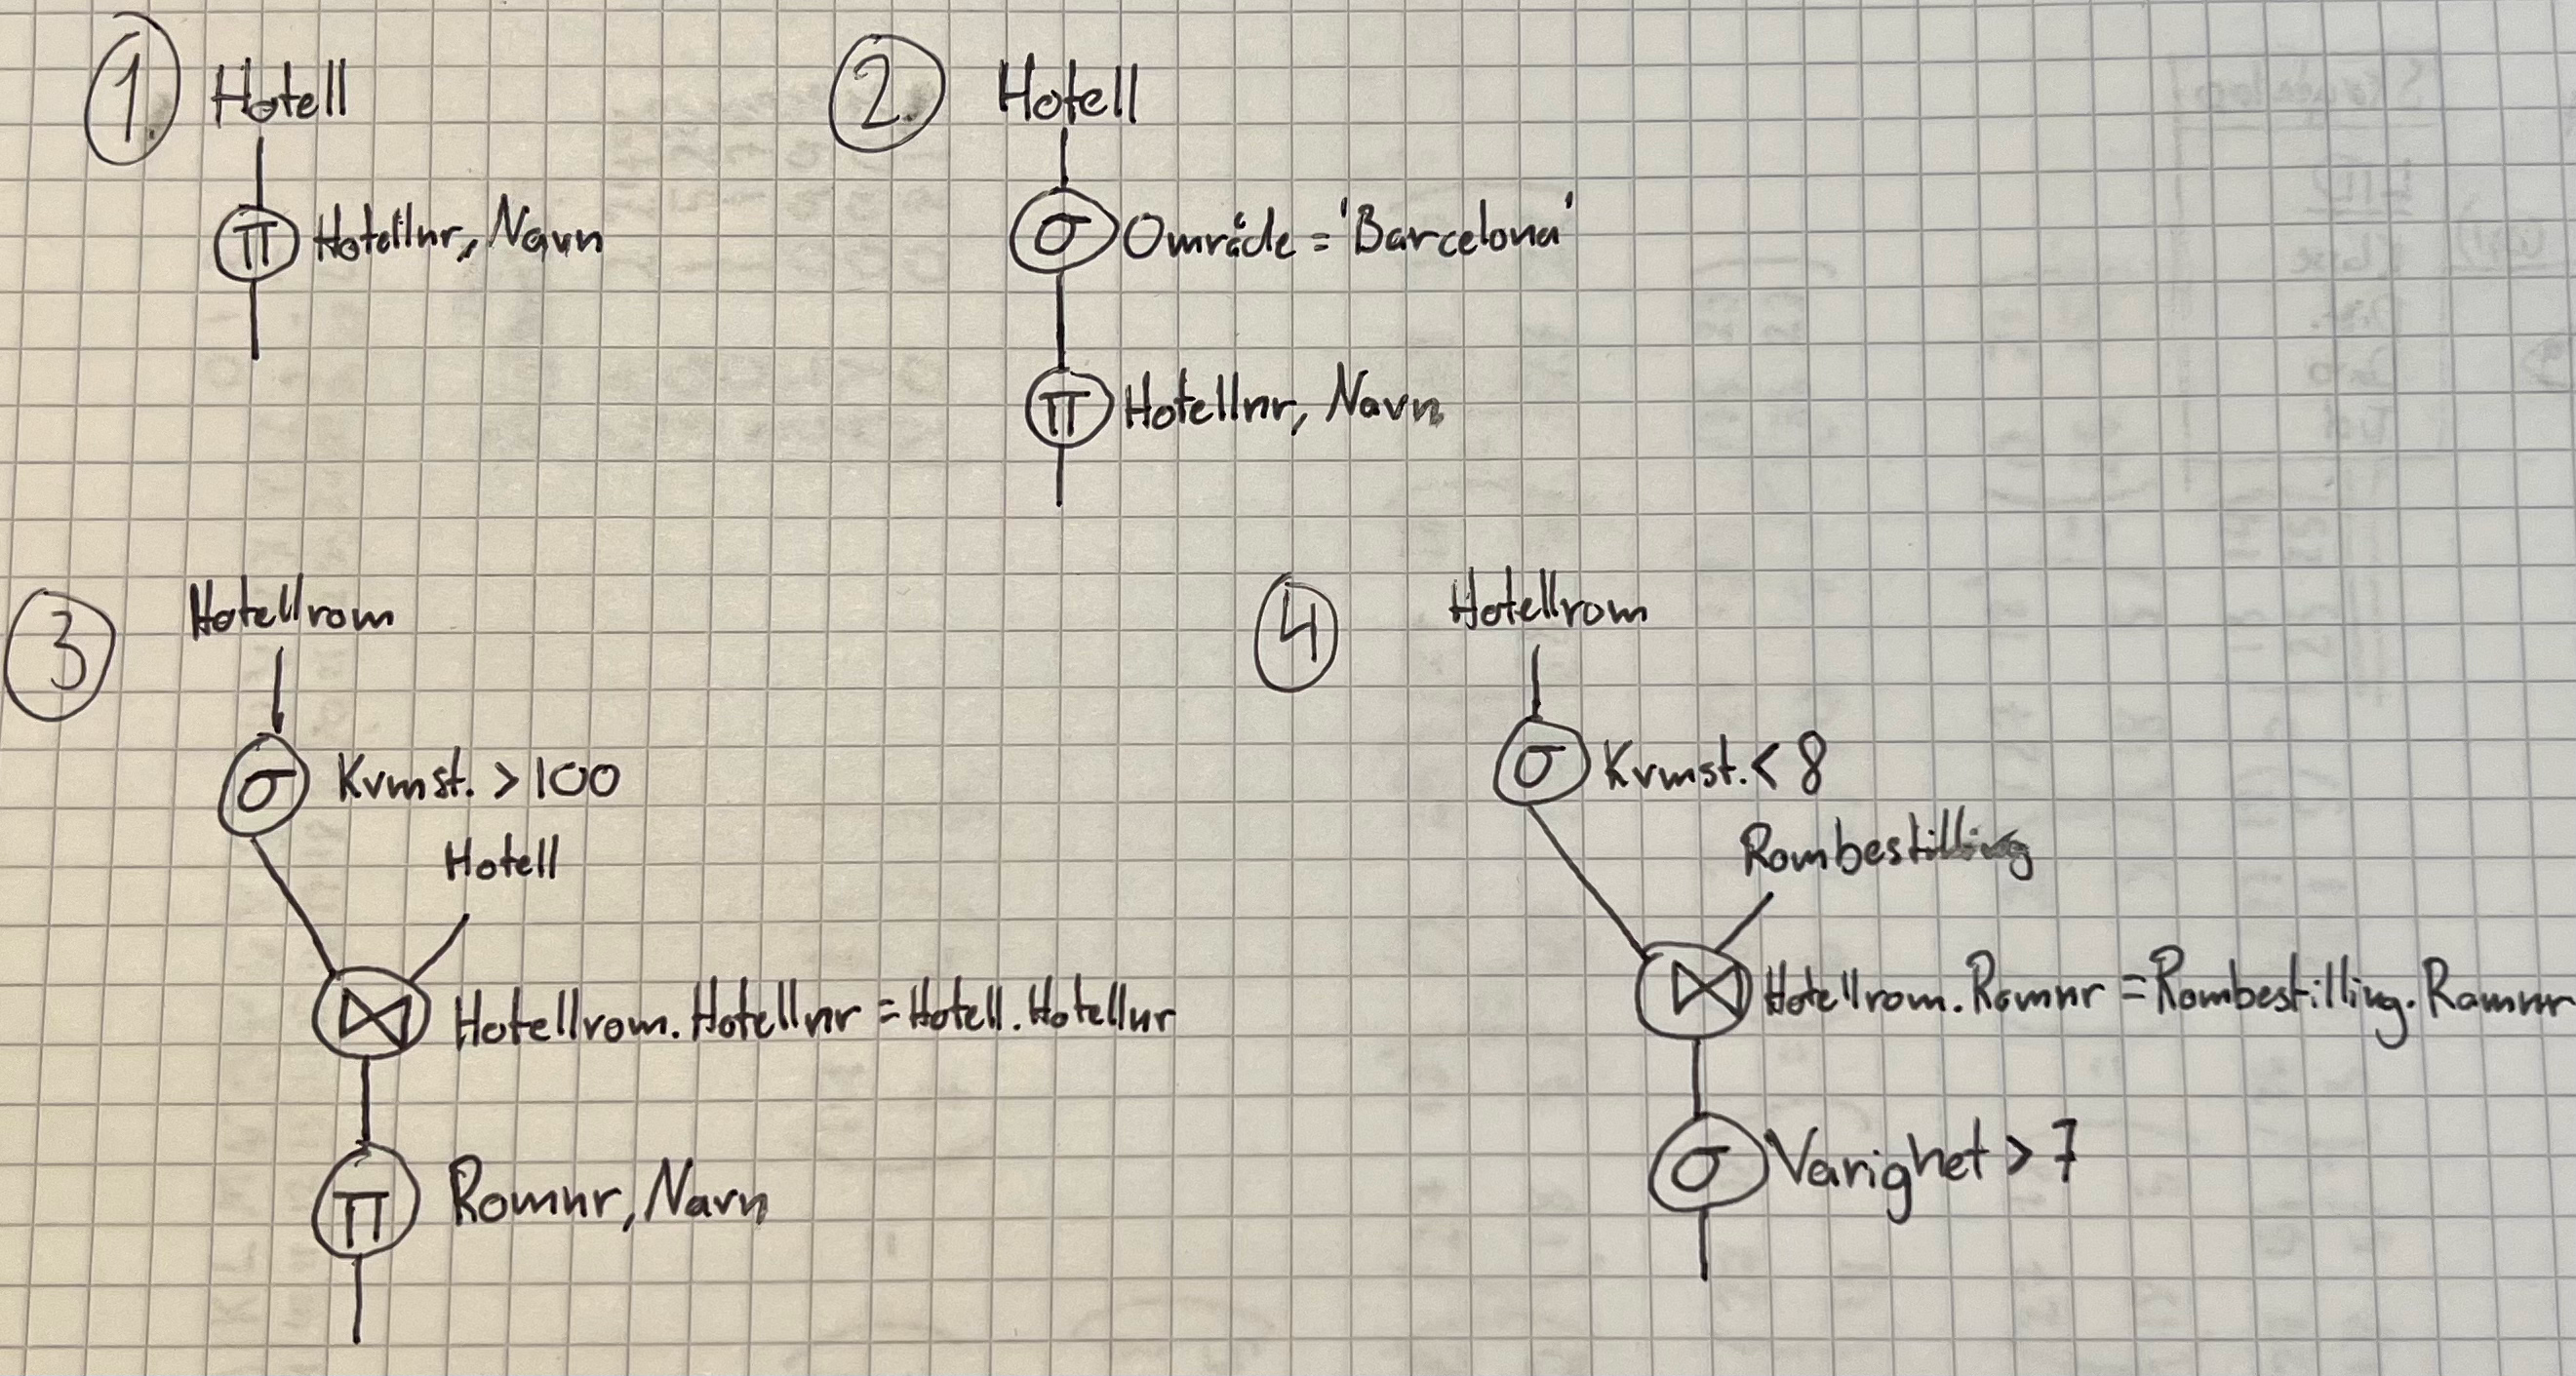 1. Hotell
π Hotellnr, Navn
2. Hotell
σ Område = 'Barcelona'
π Hotellnr, Navn
3 Hotellrom
σ Kvmst. > 100
Hotell
⋈ Hotellrom.Hotellnr = Hotell.Hotellnr
π Romnr, Navn
4 Hotellrom
σ Kvmst. < 8
Rombestilling
⋈ Hotellrom.Romnr = Rombestilling.Romnr
σ Varighet > 7